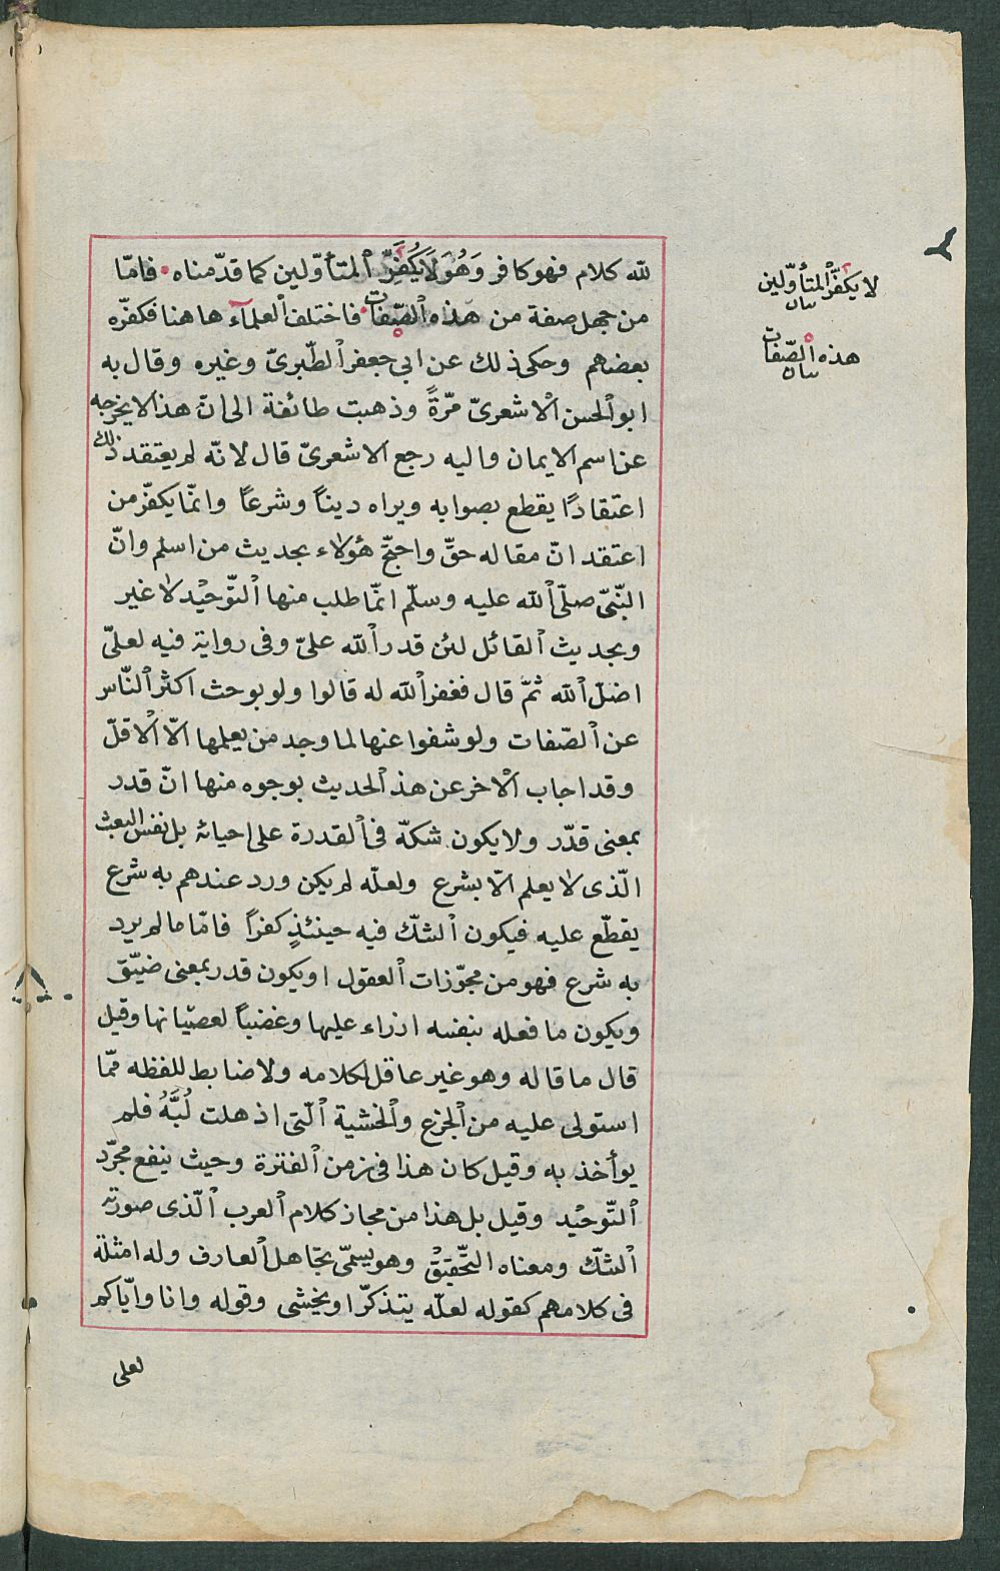 لله كلام فهو كافر وَهُوَ لَا يُكَفِّرُ ٱلمتأوّلين كما قدّمناه فامّا
من جهل صفة من هذه ٱلصّفات فاختلف ٱلعلمآء هاهنا فكفّره
بعضهم وحكى ذلك عن ابى جعفر ٱلطّبرىّ وغيره وقال به
ابو ٱلحسن ٱلاشعرىّ مرّةً وذهبت طائفة الى انّ هذا لا يخرجه
عن اسم الايمان واليه رجع الاشعرىّ قال لانّه لم يعتقد ذلك
اعتقادًا يقطع بصوابه ويراه ديناً وشرعاً وانّما يكفّر من
اعتقد انّ مقاله حقّ واحتجّ هؤلاء بحديث من اسلم وانّ
النّبىّ صلّى ٱلله عليه وسلّم انّما طلب منها ٱلتّوحيد لا غير
وبحديث ٱلقائل لئن قدر ٱلله علىّ وفى رواية فيه لعلّى
اضلّ ٱلله ثمّ قال فغفر ٱلله له قالوا ولو بوحث اكثر ٱلنّاس
عن ٱلصّفات ولو شفوا عنها لما وجد من يعلمها الّا ٱلاقلّ
وقد اجاب ٱلاخر عن هذ ٱلحديث بوجوه منها انّ قدر
بمعنى قدّر ولا يكون شكّه فى ٱلقدرة على احيائه بل نفس البعث
الّذى لا يعلم الّا بشرع ولعلّه لم يكن ورد عندهم به شرع
يقطّع عليه فيكون ٱلشّك فيه حينئذٍ كفراً فامّا ما لم يرد
به شرع فهو من مجوّزات ٱلعقول او يكون قدر بمعنى ضيّق
ويكون ما فعله بنفسه ازراء عليها وغضباً لعصيانها وقيل
قال ما قاله وهو غير عاقل لكلامه ولا ضابط للفظه ممّا
استولى عليه من ٱلجزع وٱلخشية ٱلّتى اذهلت لُبَّهُ فلم
يوأخذ به وقيل كان هذا فى زمن ٱلفترة وحيث ينفع مجرّد
ٱلتّوحيد وقيل بل هذا من مجاز كلام ٱلعرب ٱلّذى صورته
ٱلشّك ومعناه ٱلتّحقيق وهو يسمّى تجاهل ٱلعارف وله امثلة
فى كلامهم كقوله لعلّه يتذكّر او يخشى وقوله وانا وايّاكم
لعلى
لا يكفّر ٱلمتأوّلين
بيان
هذه ٱلصّفات
بيان